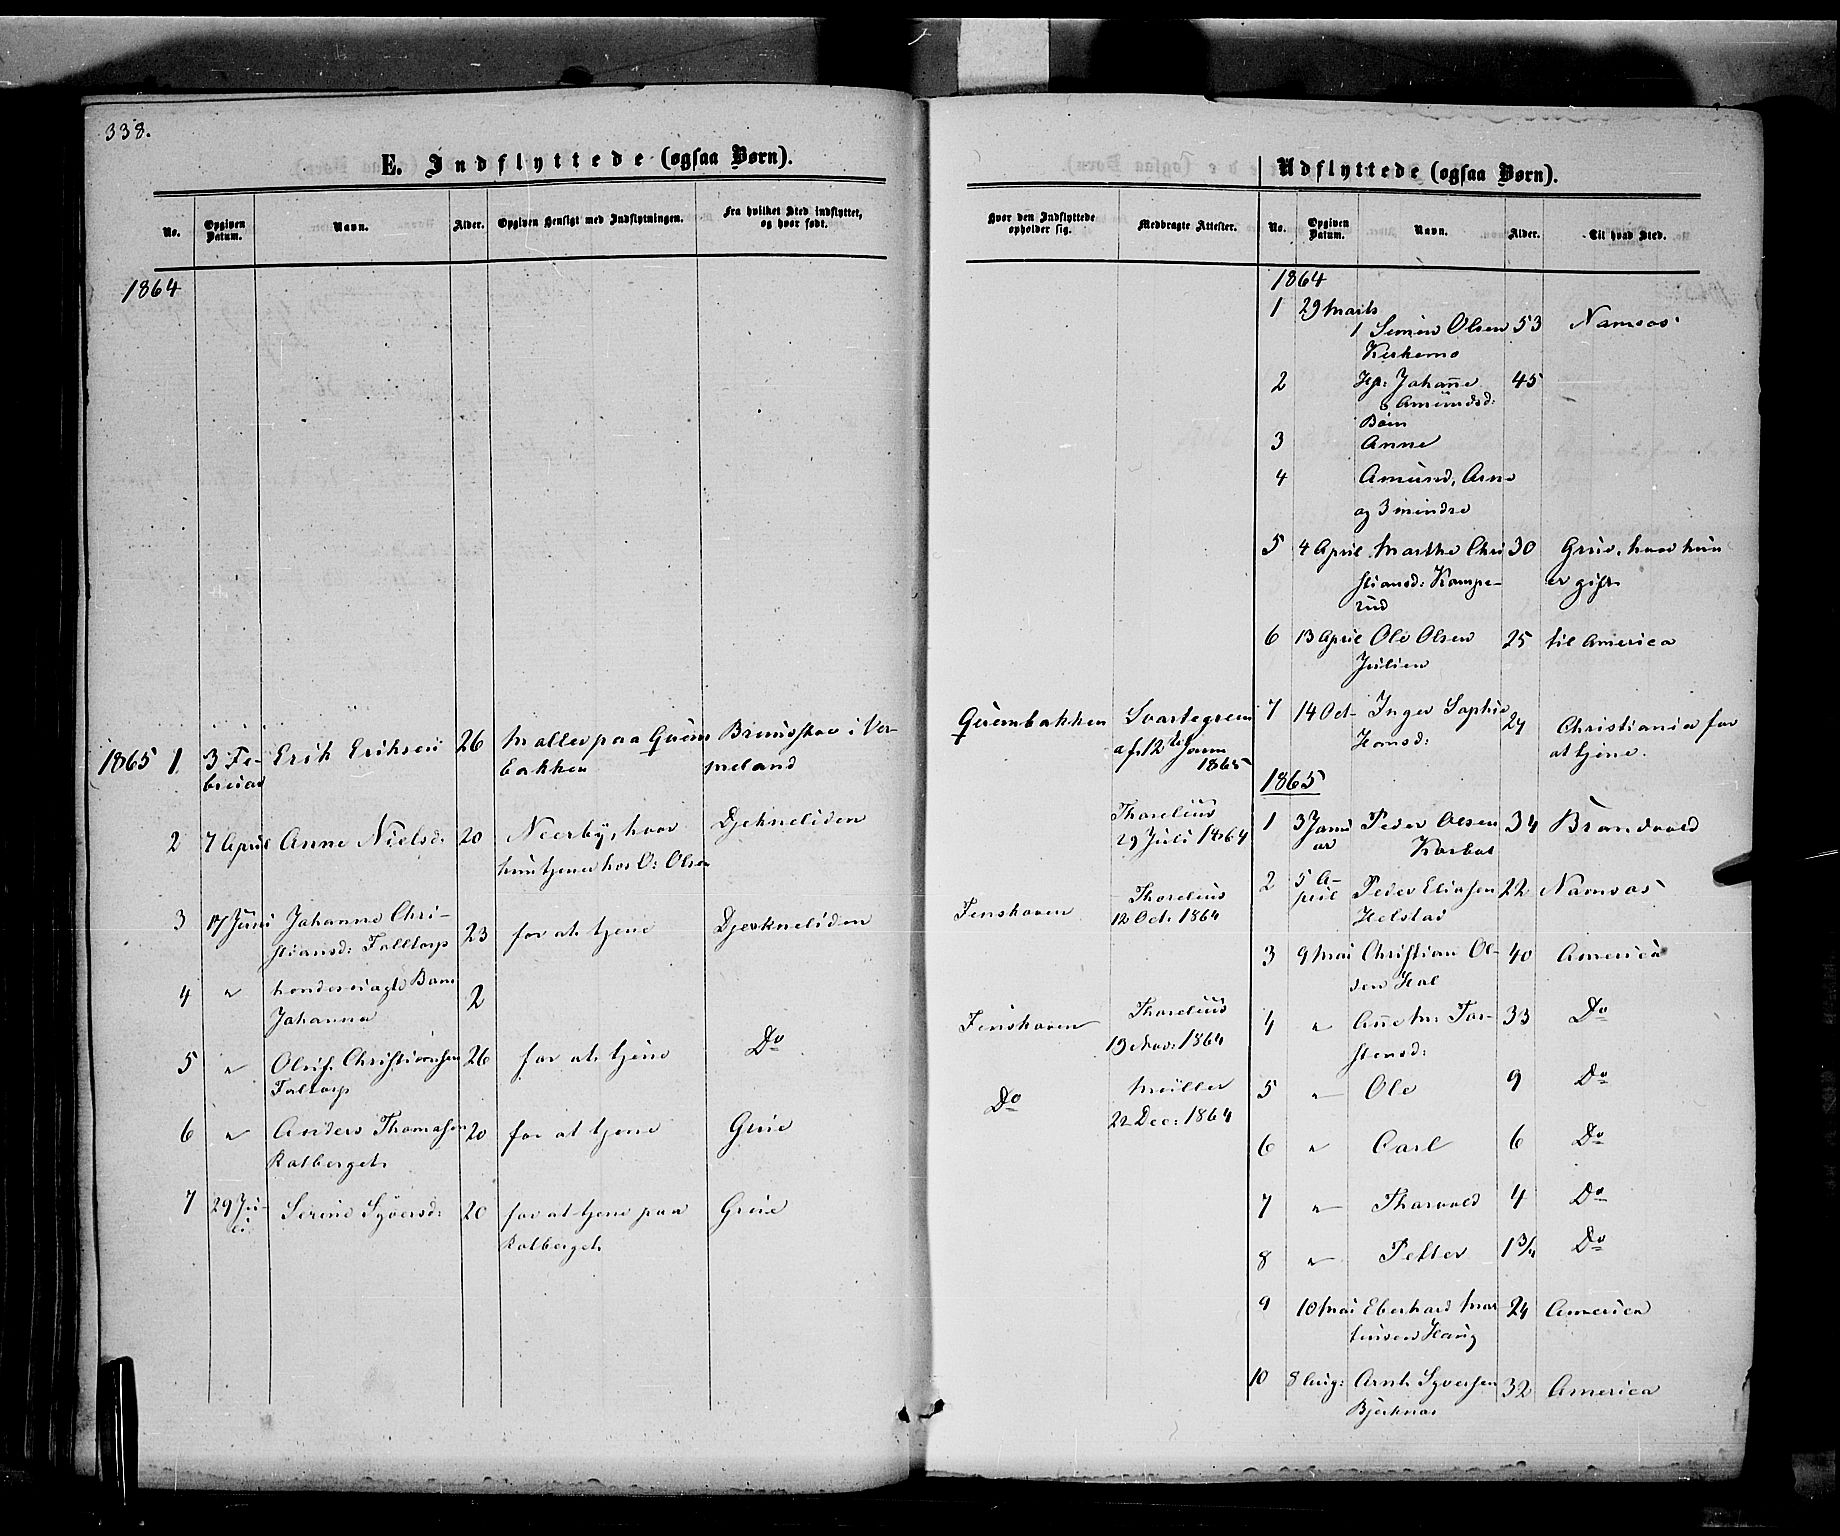 338.
E. Indflyttede (ogsaa Børn).
No.
Opgiven Datum.
Navn.
Alder.
Opgiven Hensigt med Indflytningen.
Fra hvilket Sted indflyttet, og hvor født.
1864
1865 1 3 Februar Erik Eriksen 26 Møller paa Grüm bakken
2 7 April Anne Nielsd: 20 Neerby, hvor hun tjener hos O: Olsen Djekneliden
3 17 Juni Johanne Christiansd: Falltorp 23 for at tjene Djekneliden
4 " Barn Johanna 2
5 " Christiansen Faltorp 26 for at tjene Do
6 " Anders Thomasen Kalberget 20 for at tjene Grue
7 29 Juli Serine Syversd: 20 for at tjene paa Kalberget Grue
Udflyttede (ogsaa Børn).
Hvor den Indflyttede opholder sig.
Medbragte Attester.
No.
Opgiven Datum.
Navn.
Alder.
Til hvad Sted.
af 12te Janu 1865
Thorelius
29 Juli 1864
Thorelius
12 Oct. 1864
Thorelius
19 Nov: 1864
Do
Müller
22 Dec: 1864
1864
1 29 Marts
1 Simen Olsen Kirkemo 53 Namsos
2 Johanne Amundsd: 45
Børn
3 Anne
4 Amund, Arne
og 3 mindre
5 4 April Marthe Christiansd: 30 Grue, hvor hun er gift
6 13 April Ole Olsen 25 til America
7 14 Oct. Inger Sophie Hansd: Christiania for at tjene.
1865
1 3 Januar Peder Olsen 34 Brandvold
2 5 April Peder Eliasen Helstad 22 Namsos
3 9 Mai Christian Olsen 40 America
4 " Anne M: Torstensd: 33 Do
5 " Ole 9 Do
6 " Carl 6 Do
7 " Thorvald 4 Do
8 " Petter 1 3/4 Do
9 10 Mai Eberhard Martinsen Haug 24 America
10 8 Aug: Arnt Syversen Bjerknes 32 America